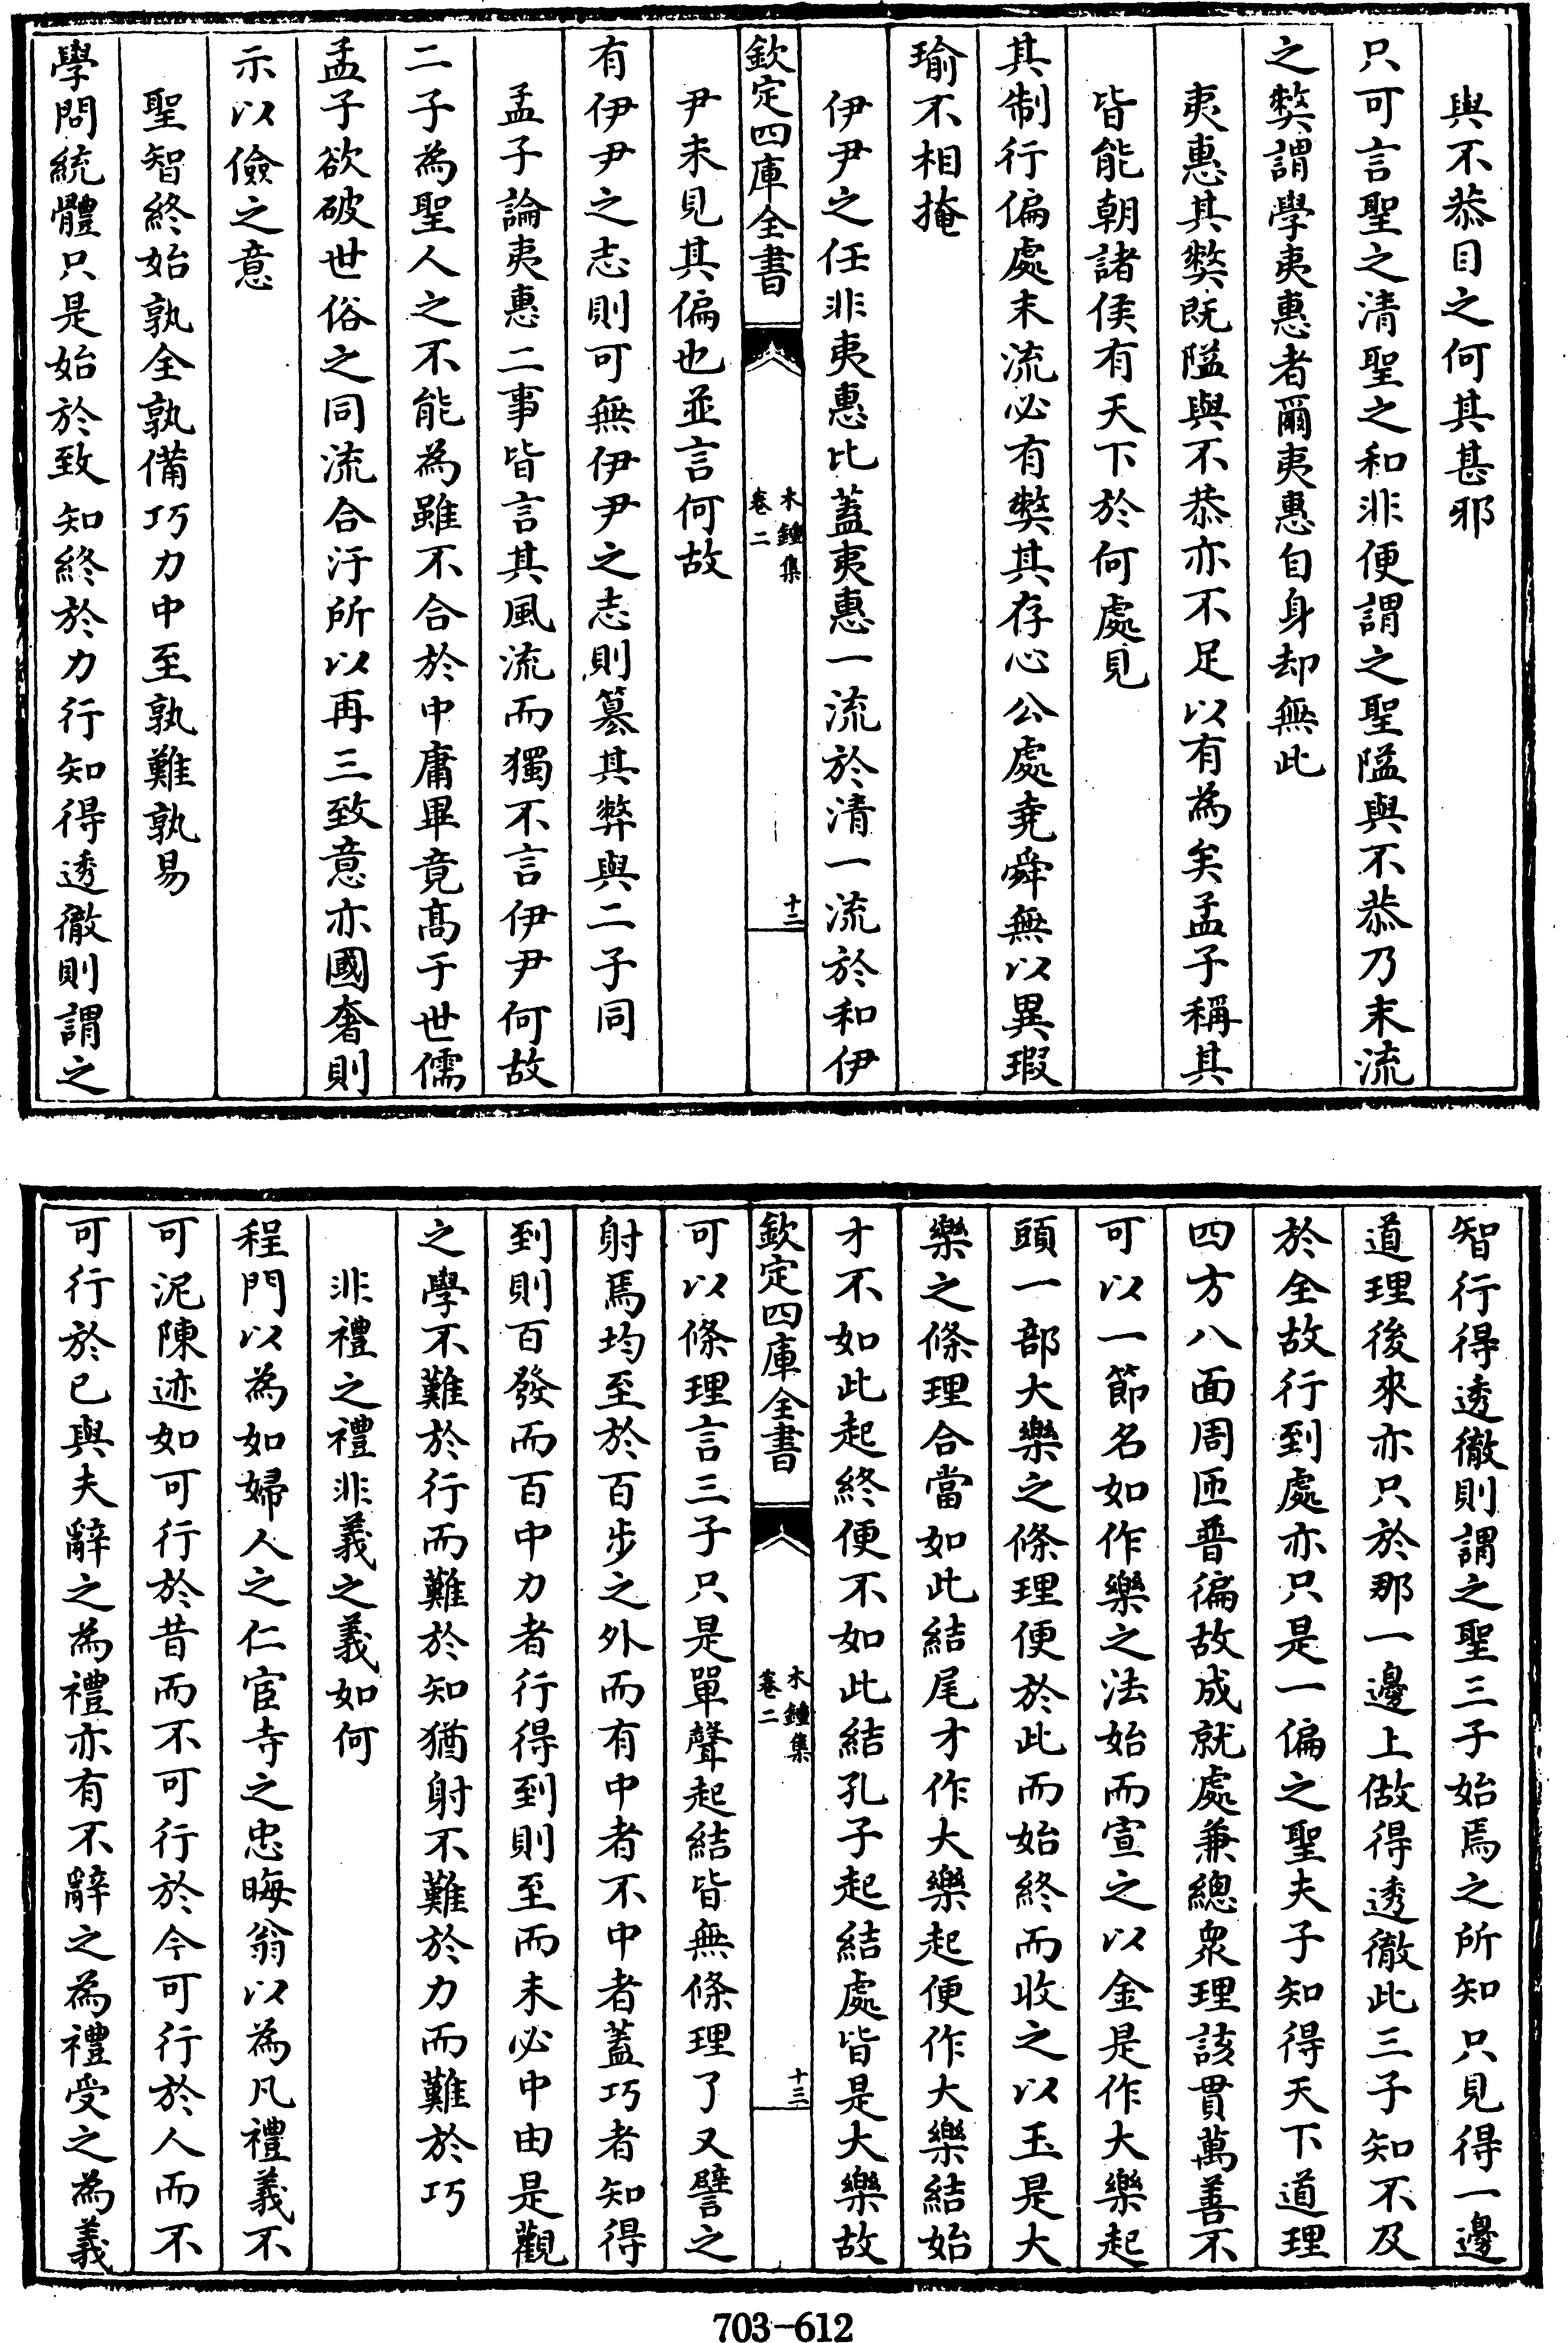 與不恭目之何其甚邪
只可言聖之清聖之和非便謂之聖隘與不恭乃末流
之獘謂學夷惠者爾夷惠自身却無此
夷惠其獘既隘與不恭亦不足以有為矣孟子稱其
皆能朝諸侯有天下於何處見
其制行偏處末流必有獘其存心公處堯舜無以異瑕
瑜不相掩
伊尹之任非夷惠比蓋夷惠一流於清一流於和伊
欽定四庫全書
木鍾集
卷二
十二
尹未見其偏也並言何故
有伊尹之志則可無伊尹之志則簒其弊與二子同
孟子論夷惠二事皆言其風流而獨不言伊尹何故
二子為聖人之不能為雖不合於中庸畢竟高于世儒
孟子欲破世俗之同流合汙所以再三致意亦國奢則
示以儉之意
聖智終始孰全孰備巧力中至孰難孰易
學問統體只是始於致知終於力行知得透徹則謂之
智行得透徹則謂之聖三子始焉之所知只見得一邊
道理後來亦只於那一邊上做得透徹此三子知不及
於全故行到處亦只是一偏之聖夫子知得天下道理
四方八面周匝普徧故成就處兼總衆理該貫萬善不
可以一節名如作樂之法始而宣之以金是作大樂起
頭一部大樂之條理便於此而始終而收之以玉是大
樂之條理合當如此結尾才作大樂起便作大樂結始
才不如此起終便不如此結孔子起結處皆是大樂故
欽定四庫全書
木鍾集
卷二
十三
可以條理言三子只是單聲起結皆無條理了又譬之
射焉均至於百步之外而有中者不中者蓋巧者知得
到則百發而百中力者行得到則至而未必中由是觀
之學不難於行而難於知猶射不難於力而難於巧
非禮之禮非義之義如何
程門以為如婦人之仁宦寺之忠晦翁以為凡禮義不
可泥陳迹如可行於昔而不可行於今可行於人而不
可行於已與夫辭之為禮亦有不辭之為禮受之為義
703-612